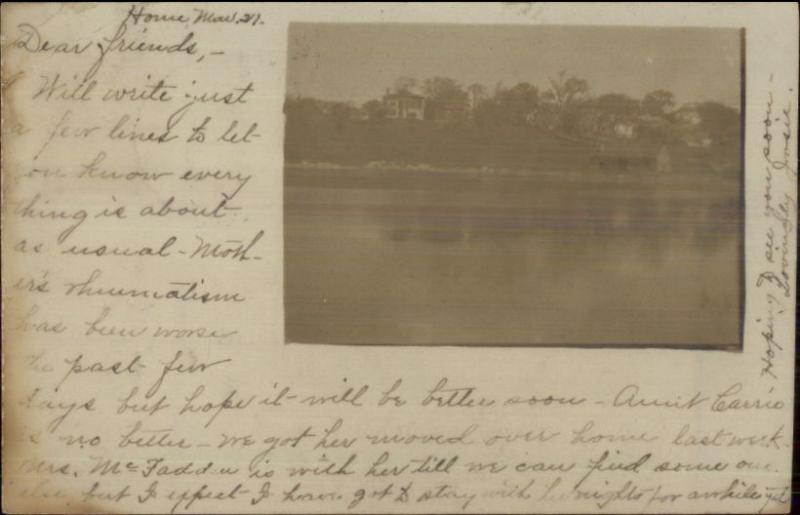 Home Mar. 21.
Dear friends,-
Will write just
a few lines to let
you know every
thing is about
as usual - Moth-
er's rheumatism
has been worse
the past few
days but hope it will be better soon - Aunt Carrie
is no better - We got her moved over home last week -
Mrs. McFadden is with her till we can find some one
else, but I expect I have got to stay with her nights for awhile yet
Hoping to see you soon -
Lovingly Josie.